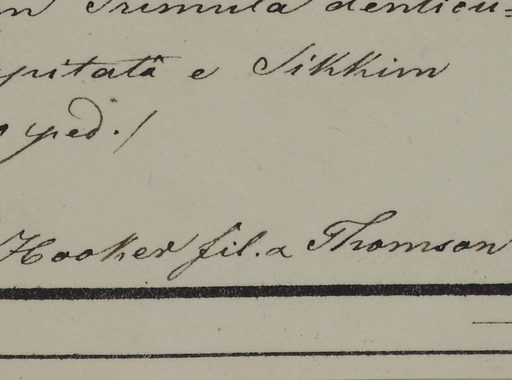 in Primula denticu=
pitatâ e Sikkim
ped.)
Hooker fil. a Thomson